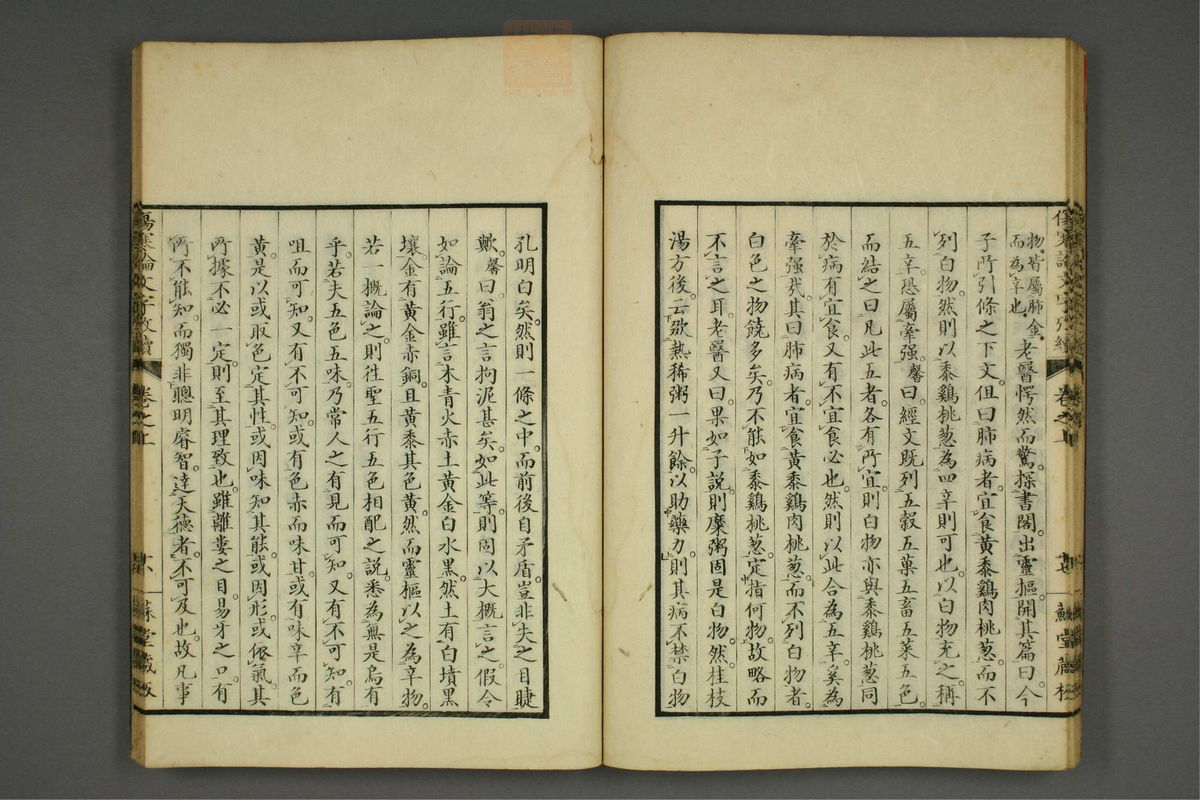 物皆屬肺金
而為辛也
老醫愕然而驚探書閣出靈樞開其篇曰今
子所引條之下文但曰肺病者宜食黃黍鷄肉桃葱而不
列白物然則以黍鷄桃葱為四辛則可也以白物充之稱
五辛恐屬牽强馨曰經文既列五穀五菓五畜五菜五色
而結之曰凡此五者各有所宜則白物亦與黍鷄桃葱同
於病有宜食又有不宜食必也然則以此合為五辛奚為
牽强哉其曰肺病者宜食黃黍鷄肉桃葱而不列白物者
白色之物饒多矣乃不能如黍鷄桃葱定指何物故略而
不言之耳老醫又曰果如子說則糜粥固是白物然桂枝
湯方後云歠熱稀粥一升餘以助藥力則其病不禁白物
孔明白矣然則一條之中而前後自矛盾豈非失之目睫
歟馨曰翁之言拘泥甚矣如此等則固以大概言之假令
如論五行雖言木青火赤土黃金白水黑然土有白墳黑
壤金有黃金赤銅且黃黍其色黃然而靈樞以之為辛物
若一概論之則往聖五行五色相配之說悉為無是烏有
乎若夫五色五味乃常人之有見而可知又有不可知有
咀而可知又有不可知或有色赤而味甘或有味辛而色
黃是以或取色定其性或因味知其能或因形或依氣其
所據不必一定則至其理致也雖離婁之目易牙之口有
所不能知而獨非聰明睿智達天德者不可及也故凡事
傷寒論文字攷續
卷之上
蘇堂藏板